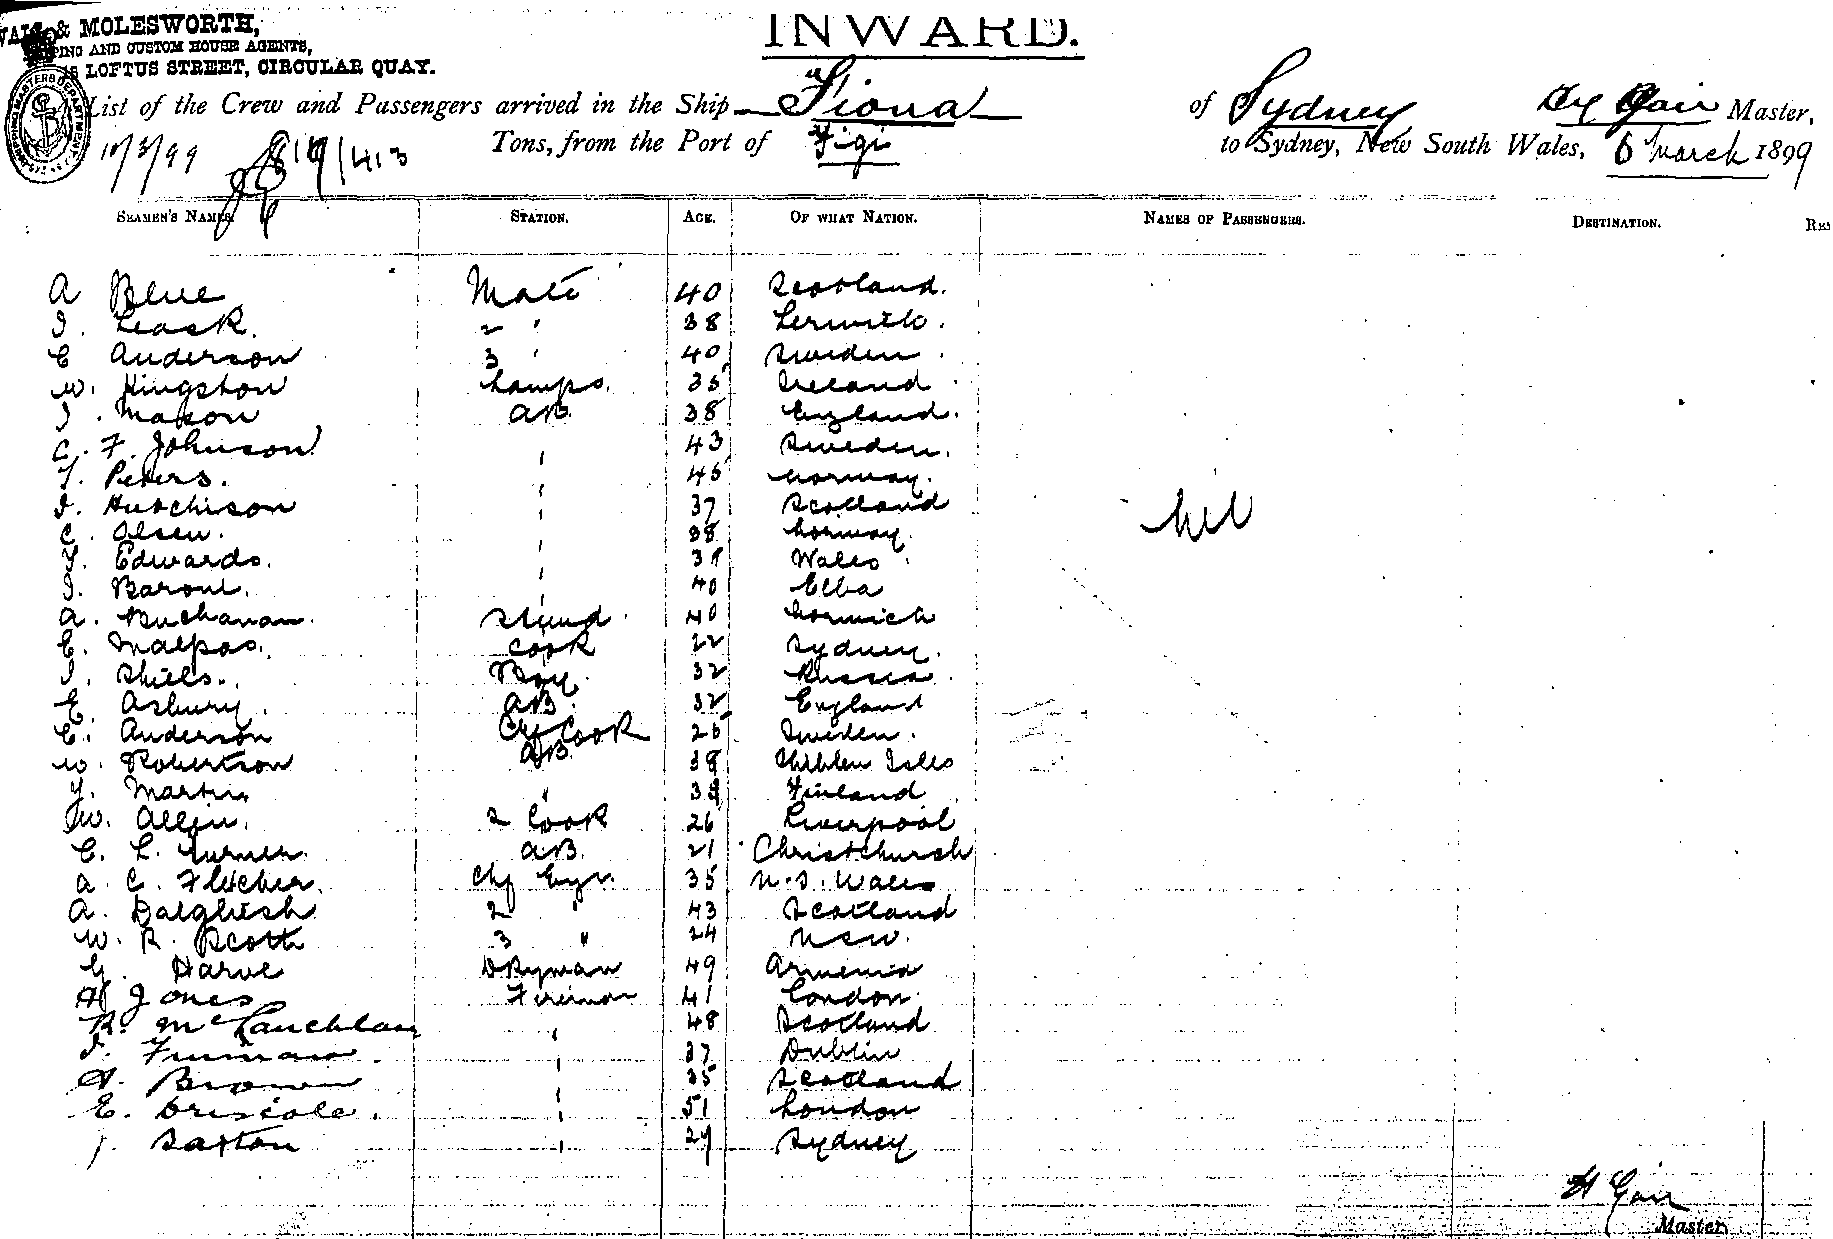 & MOLESWORTH,
PING AND CUSTOM HOUSE AGENTS,
LOFTUS STREET, CIRCULAR QUAY.
INWARD.
List of the Crew and Passengers arrived in the Ship "Fiona of Sydney Gair Master,
10/3/99 Tons, from the Port of Figi to Sydney, New South Wales, 6 March 1899
SEAMEN'S NAMES. STATION. AGE. OF WHAT NATION. NAMES OF PASSENGERS. DESTINATION.
A Blue Mate 40 Scotland.
J. Leask. 2 " 38 Lerwick.
C Anderson 3 " 40 Sweden.
W. Kingston Lamps. 35 Ireland
J. Mason AB. 38 England.
C. F. Johnson " 43 Sweden.
T. Peters. " 45 Norway.
J. Hutchison " 37 Scotland
Nil
C. Olsen. " 38 Norway.
Edwards. " Wales
J. Baroni. " 40 Elba
A. Buchanan. Stewd. 40
E. Malpas. Cook 22 Sydney.
J. Shiels. Boy 32 Russia
E. Asbury. AB. 32 England
C. Anderson Cook 25 Sweden.
W. Robertson AB. 38 Isles
Martin " Finland
W. Allen. 2 Cook 26 Liverpool
C. L. Turner. AB. 21 Christchurch
A. C. Fletcher. Chf Engr. 35 N. S. Wales
A. Dalgliesh 2 " 43 Scotland
W. R. Scott 3 " 24 NSW.
G. Harve Dkyman 49 Armenia
H Jones Fireman 41 London.
R. McLauchlan " 48 Scotland
J. Freeman " 37 Dublin
A. Brown " 35 Scotland
E. Driscole. " 51 London
J. Saxton " 29 Sydney
H Gair
Master